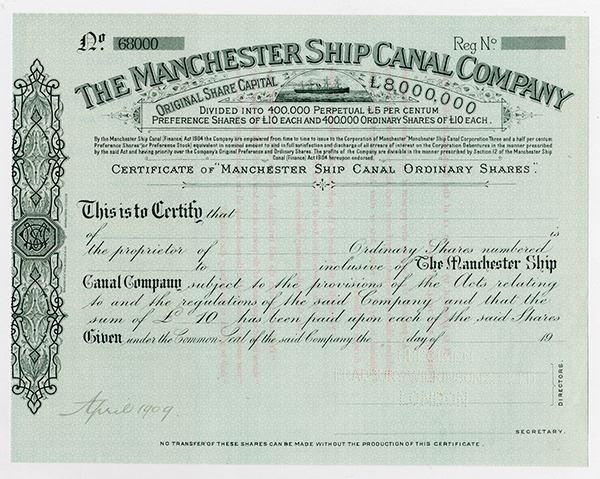 No. 68000 Reg No.
THE MANCHESTER SHIP CANAL COMPANY
ORIGINAL SHARE CAPITAL £8,000,000
DIVIDED INTO 400,000 PERPETUAL £5 PER CENTUM
PREFERENCE SHARES OF £10 EACH AND 400,000 ORDINARY SHARES OF £10 EACH.
By the Manchester Ship Canal (Finance) Act 1904 the Company are empowered from time to time to issue to the Corporation of Manchester "Manchester Ship Canal Corporation Three and a half per centum
Preference Shares" (or Preference Stock) equivalent in nominal amount to and in full satisfaction and discharge of all arrears of interest on the Corporation Debentures in the manner prescribed
by the said Act and having priority over the Company's Original Preference and Ordinary Shares. The profits of the Company are divisible in the manner prescribed by Section 12 of the Manchester Ship
Canal (Finance) Act 1904 hereon endorsed.
CERTIFICATE OF "MANCHESTER SHIP CANAL ORDINARY SHARES".
This is to Certify that
of is
the proprietor of Ordinary Shares numbered
to inclusive of The Manchester Ship
Canal Company subject to the provisions of the Acts relating
to and the regulations of the said Company and that the
sum of £ 10 has been paid upon each of the said Shares
Given under the Common Seal of the said Company the day of 19
DIRECTORS.
LONDON
April 1909.
SECRETARY.
NO TRANSFER OF THESE SHARES CAN BE MADE WITHOUT THE PRODUCTION OF THIS CERTIFICATE.